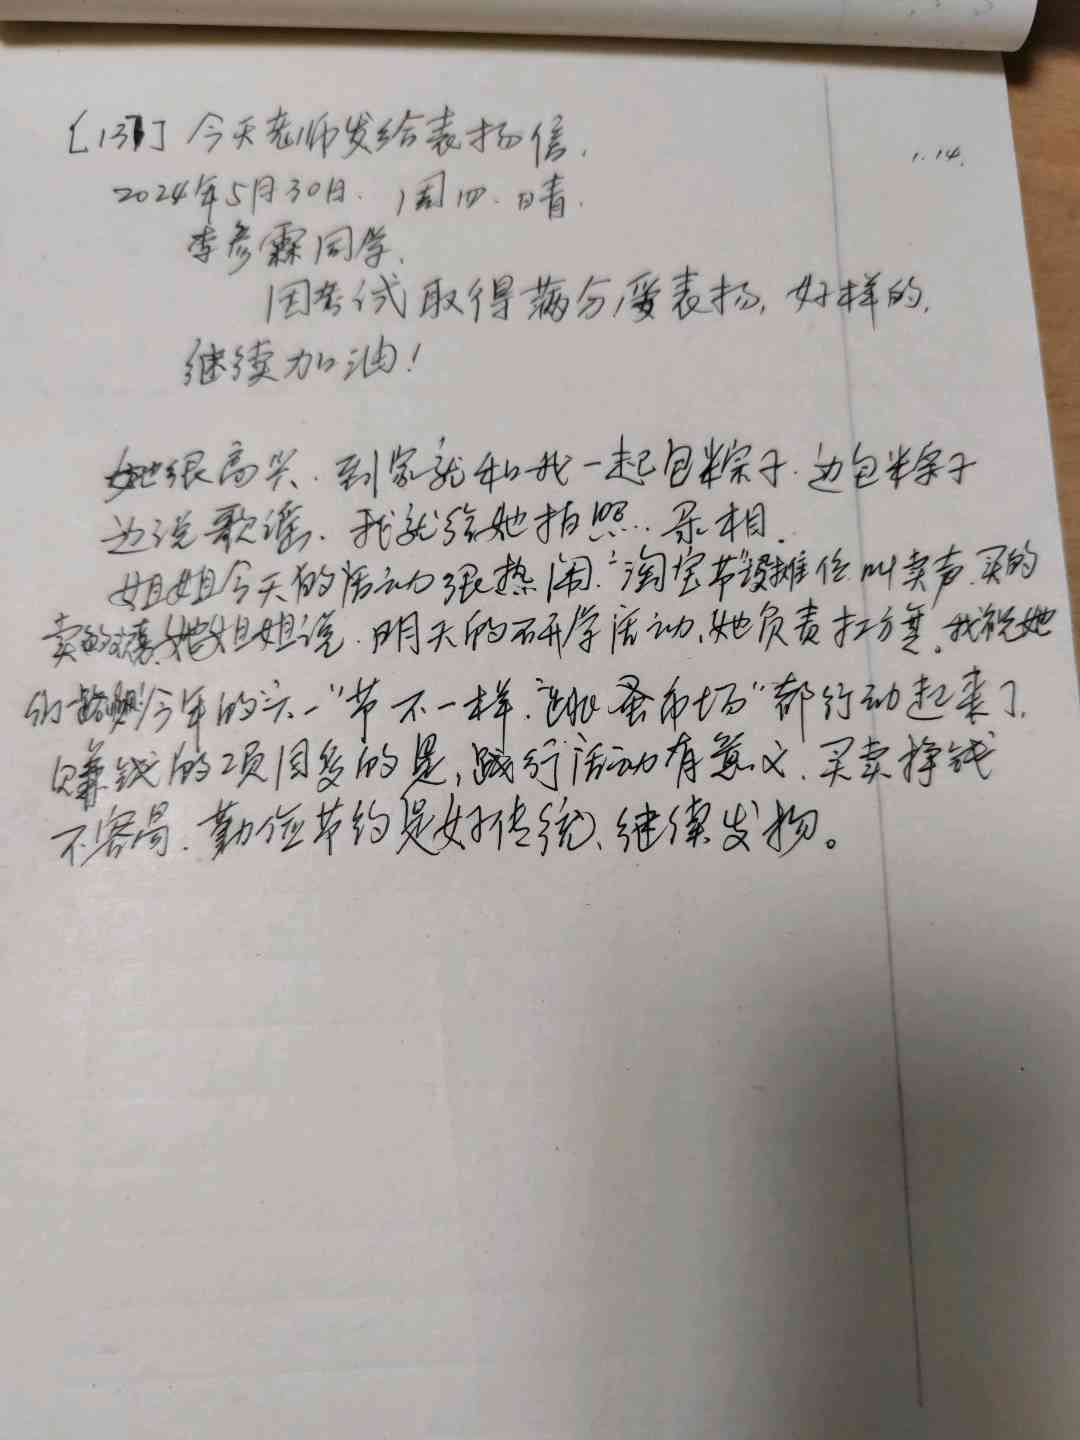 [137] 今天老师发给表扬信.
1.14.
2024年5月30日. 周四. 晴.
李彦霖同学.
因考试取得满分受表扬, 好样的,
继续加油!
她很高兴. 到家就和我一起包粽子. 边包粽子
边说歌谣. 我就给她拍照. 录相.
姐姐今天的活动很热闹. "淘宝节"设摊位 叫卖声. 买的
卖的 她姐姐说. 明天的研学活动、她负责扛 我说她
们 今年的六一"节不一样. "跳蚤市场"都行动起来了.
赚钱的项目多的是, 践行活动有意义. 买卖挣钱
不容易. 勤俭节约是好传统、继续发扬。